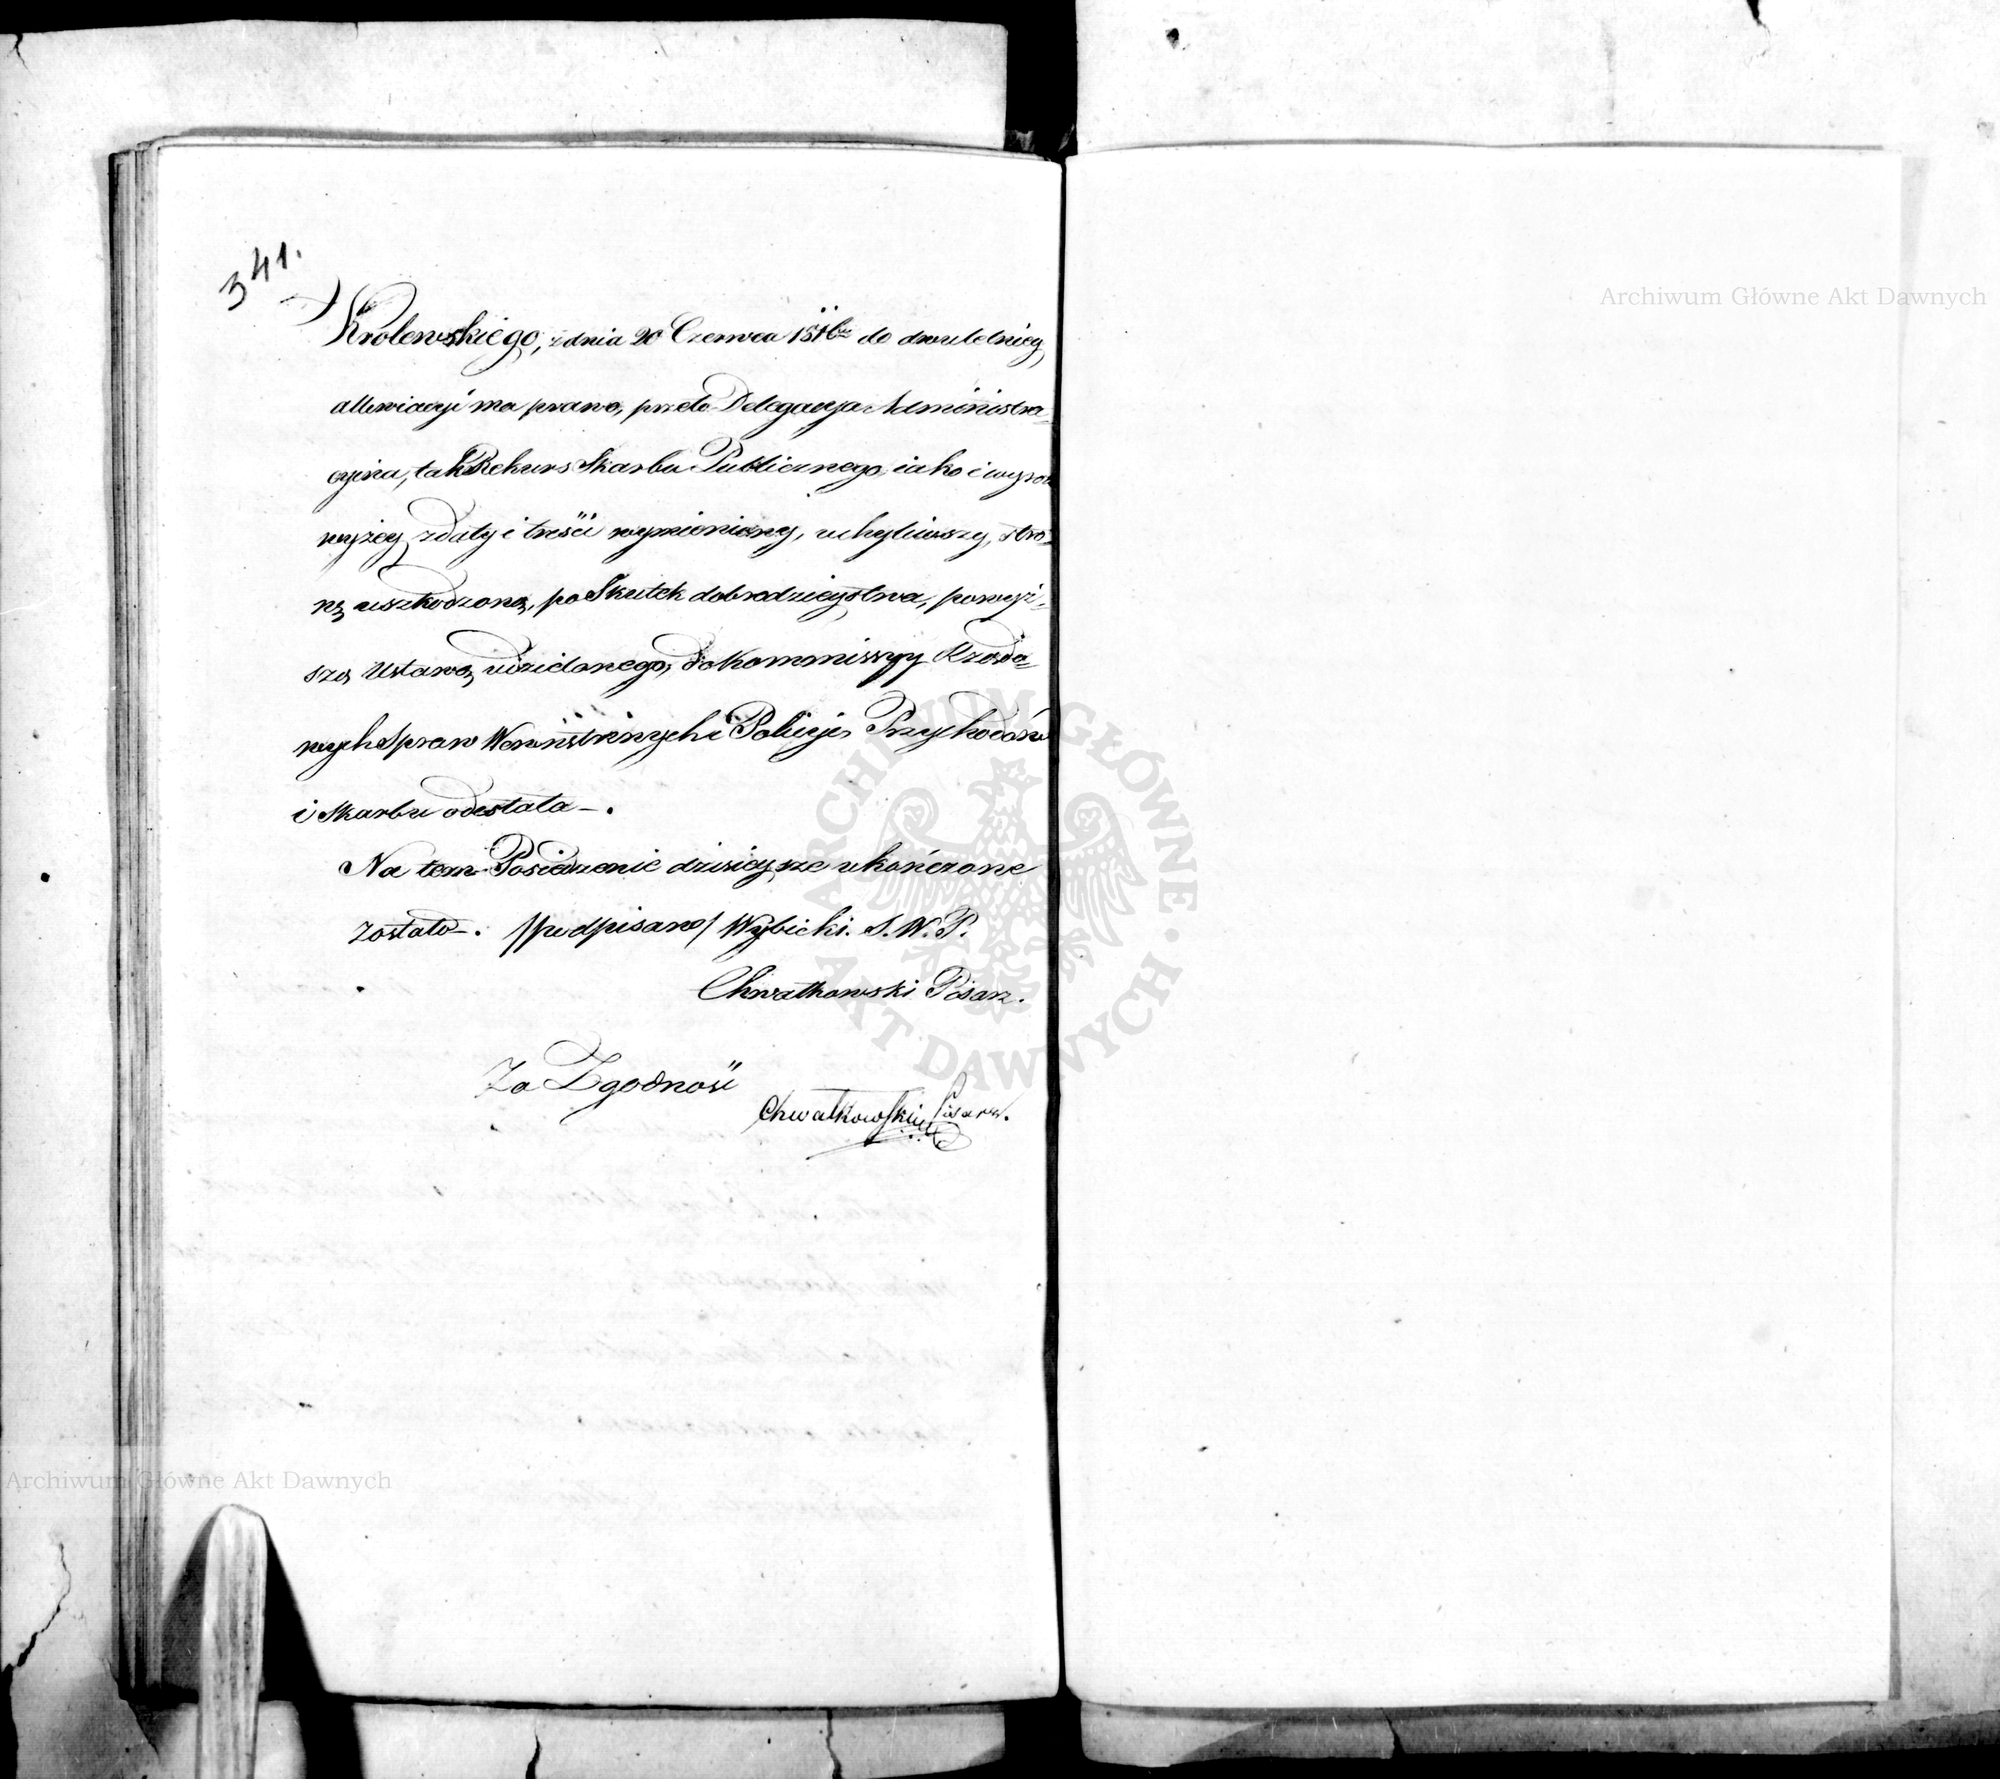 341.
Królewskiego, z dnia 20 Czerwca 1816 do dwuletniey
allewiacyi ma prawo, przeto Delegacya Administra-
cyina, tak Rekurs Skarbu Publicznego, iako i wyrok
wyżey z daty i treści wymieniony, uchyliwszy, stro-
nę uszkodzoną, po Skutek dobrodzieystwa, powyż-
szą Ustawą udzielonego, do Kommissyy Rządo-
wych Spraw Wewnętrznych i Policyi, Przychodów
i Skarbu odesłała -.
Na tem Posiedzenie dzisieysze ukończone
zostało -. /podpisano/ Wybicki. S. W. P.
Chwatkowski Pisarz.
Za Zgodność
Chwatkowski Pisarz.
Archiwum Główne Akt Dawnych
Archiwum Główne Akt Dawnych
ARCHIWUM GŁÓWNE · AKT DAWNYCH ·